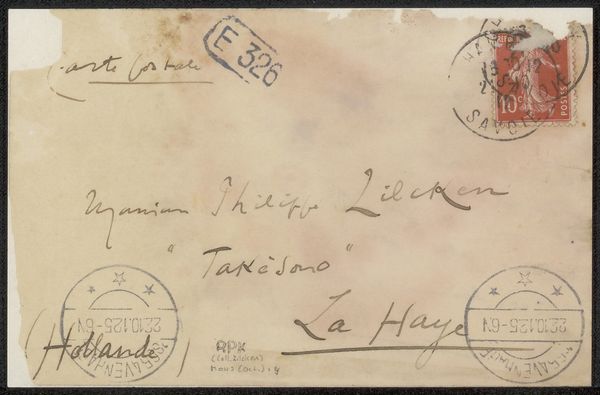 E 326
Carte postale
10c
POSTES
SAVOIE
Monsieur Philippe Zilcken
"Takésono"
La Haye
(Hollande)
22.10.12.5-6N
'S GRAVENHAGE
22.10.12.5-6N
'S GRAVENHAGE
RPK
(coll. Zilcken)